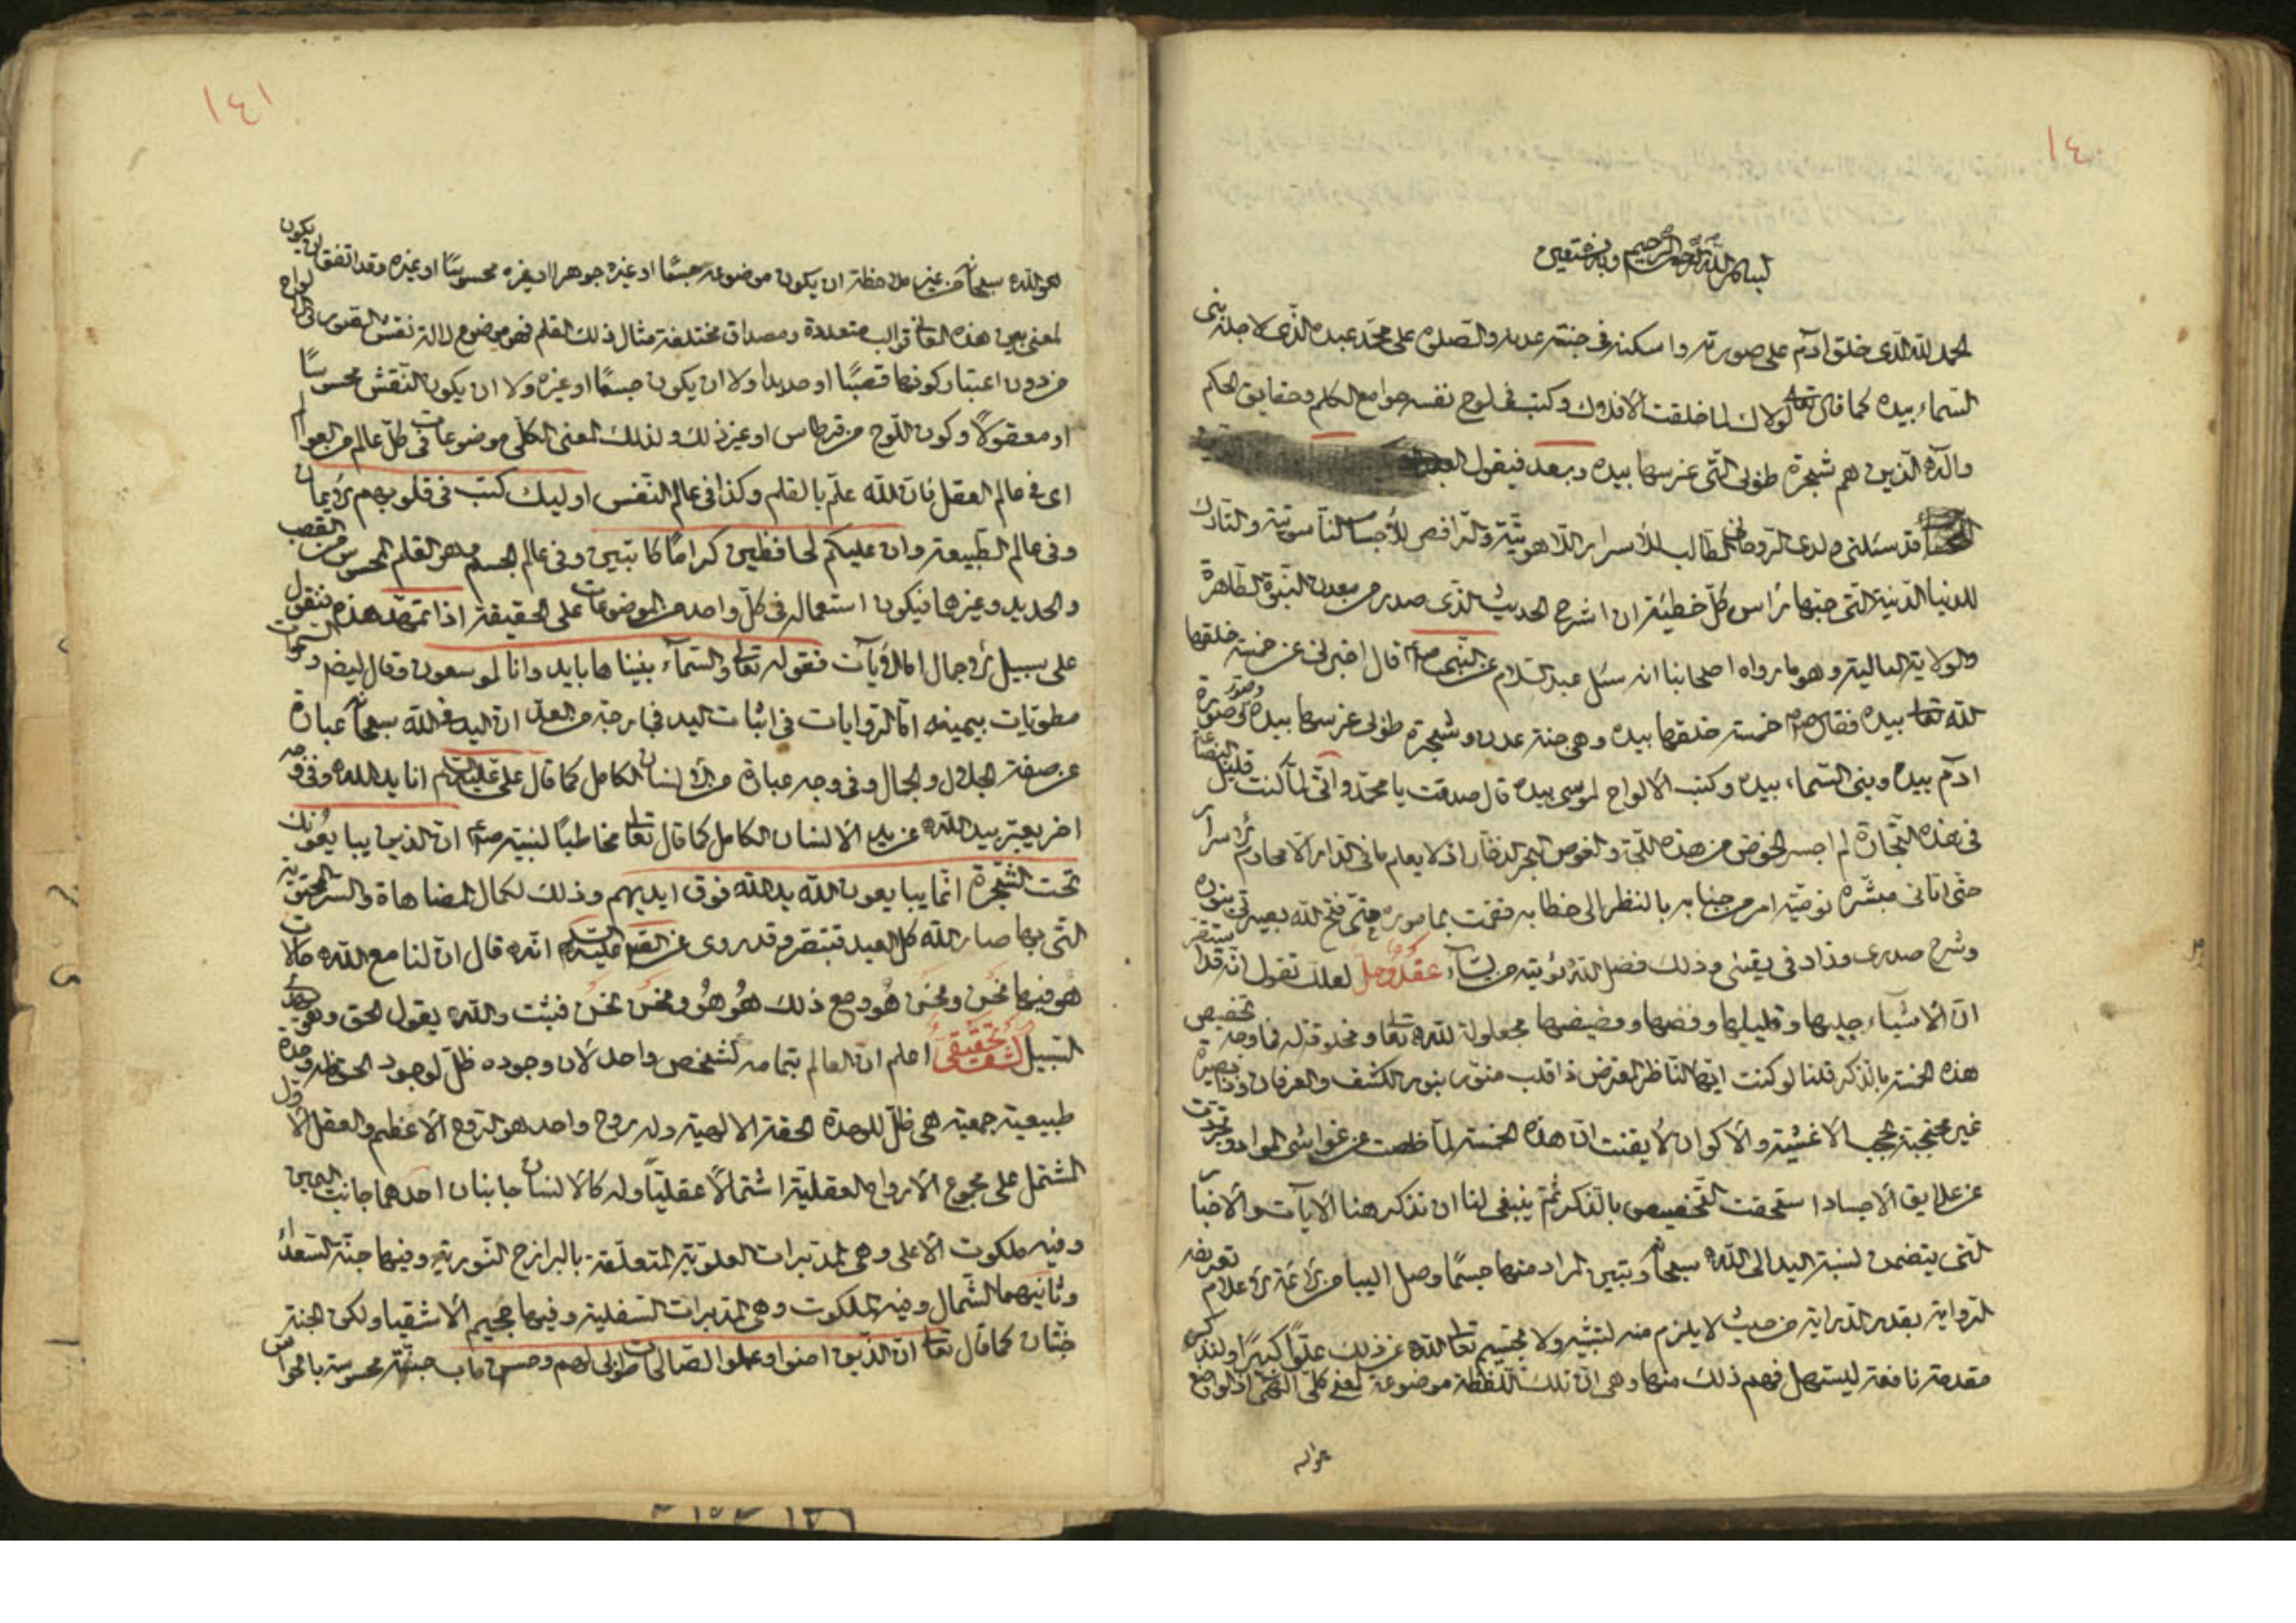 ١٤٠
بسم الله الرحمن الرحيم وبه نستعين
الحمد لله الذى خلق آدم على صورته واسكنه فى جنة عدنه والصلوة على محمد عبده الذى لاجله بنى
السماء بيده كما قال تعالى لولاك لما خلقت الافلاك وكتب فى لوح نفسه جوامع الكلم وحقايق الحكم
وآله الذين هم شجرة طوبى التى غرسها بيده وبعد فيقول العبد
قد سئلنى ولدى الروحانى الطالب للاسرار اللاهوتية والرافض للأجساد الناسوتية والتارك
للدنيا الدنية التى حبها رأس كل خطيئة ان اشرح الحديث الذى صدر من معدن النبوة الطاهرة
والولاية العالية وهو ما رواه اصحابنا انه سئل عبد السلام عن النبى صلعم قال اخبرنى عن خمسة خلقها
الله تعالى بيده فقال صلعم خمسة خلقها بيده وهى جنة عدن وشجرة طوبى غرسها بيده وصور صورة
ادم بيده وبنى السماء بيده وكتب الالواح لموسى بيده قال صدقت يا محمد وانى لما كنت قليل البضاعة
فى هذه التجارة لم اجسر الخوض من هذه اللجة والغوص البحر الذخار اذ لا يعلم ما فى الدار الا محارم الاسرار
حتى اتانى مبشره نوقيه امر من جنابه بالنظر الى خطابه فقمت بماموره حتى فتح الله بصيرتى بنوره
وشرح صدرى وزاد فى يقينى وذلك فضل الله يؤتيه من يشاء لعلك تقول انه قد استقر
ان الاشياء جليها وقليلها وفضها وفضيضها مجعولة لله تعالى ومخلوقة له فما وجه تخصيص
هذه الخمسة بالذكر قلنا لو كنت ايها الناظر المعترض ذا قلب منور بنور الكشف والعرفان وذا بصيرة
غير محتجبة بحجب الاغشية والاكوان لايقنت ان هذه الخمسة لما خلصت عن غواشى المواد وتجردت
عن علايق الاجساد استحقت التخصيص بالذكر ثم ينبغى لنا ان نذكر هنا الايات والاخبار
التى يتضمن نسبة اليد الى الله سبحانه وتبيين المراد منها حسبما وصل الينا من الائمة الاعلام تعريضه
الرواية بقدر الدراية من حيث لا يلزم منه تشبيه ولا تجسيم تعالى الله عن ذلك علوا كبيرا ولنذكر
مقدمة نافعة ليسهل فهم ذلك منها وهى ان تلك اللفظة موضوعة لمعنى كلى الهى اذ الواضع
هو الله
١٤١
هو الله سبحانه من غير ملاحظة ان يكون موضوعه جسما او غيره جوهرا او غيره محسوسا او غيره وقد اتفق ان يكون
لمعنى بين هذه المعانى قوالب متعددة ومصداق مختلفة مثال ذلك القلم فهو موضوع لالة نقش الصور فى الالواح
من دون اعتبار كونها قصبا او حديدا ولا ان يكون جسما او غيره ولا ان يكون النقش محسوسا
او معقولا وكون اللوح من قرطاس او غير ذلك ولذلك المعنى الكلى موضوعات فى كل عالم من العوالم
اى فى عالم العقل فان الله علم بالقلم وكذا فى عالم النفس اوليك كتب فى قلوبهم الايمان
وفى عالم الطبيعة وان عليكم لحافظين كراما كاتبين وفى عالم الجسم وهو القلم المحسوس من القصب
والحديد وغيرها فيكون استعماله فى كل واحد من الموضوعات على الحقيقة اذا تمهد هذه فنقول
على سبيل الاجمال اما الايات فقوله تعالى والسماء بنيناها بايد وانا لموسعون وقال ايضا والسموات
مطويات بيمينه اما الروايات فى اثبات اليد ان اليد من الله سبحانه عبارة
عن صفة الجلال والجمال وفى وجه عبارة من الانسان الكامل كما قال على عليه السلام انا يد الله وفى وجه
اخر يعبر بيد الله عن يد الانسان الكامل كما قال تعالى مخاطبا لنبيه صلعم ان الذين يبايعونك
تحت الشجرة انما يبايعون الله يد الله فوق ايديهم وذلك لكمال المضاهاة والسر المحقوقية
التى بها صار الله كل العبد فتبصر وقد روى عن عليه السلام انه قال ان لنا مع الله حالات
هو فيها نحن ونحن هو ومع ذلك هو هو ونحن نحن فثبت والله يقول الحق وهو يهدى
السبيل كشف تحقيقى اعلم ان العالم بتمامه كشخص واحد لان وجوده ظل لوجود الحق وله وحدة
طبيعية جمعية هى ظل للوحدة الحقة الالهية وله روح واحد هو الروح الاعظم والعقل الاول
المشتمل على مجموع الارواح العقلية اشتمالا عقليا وله كالانسان جانبان احدهما جانب اليمين
وفيه ملكوت الاعلى وهى المدبرات العلوية المتعلقة بالبرازخ النورية وفيها جنة السعداء
وثانيهما الشمال وفيه الملكوت وهى المدبرات السفلية وفيها جحيم الاشقيا ولكن الجنة
جنتان كما قال تعالى ان الذين امنوا وعملوا الصالحات طوبى لهم وحسن ماب جنة محسوسة بالحواس